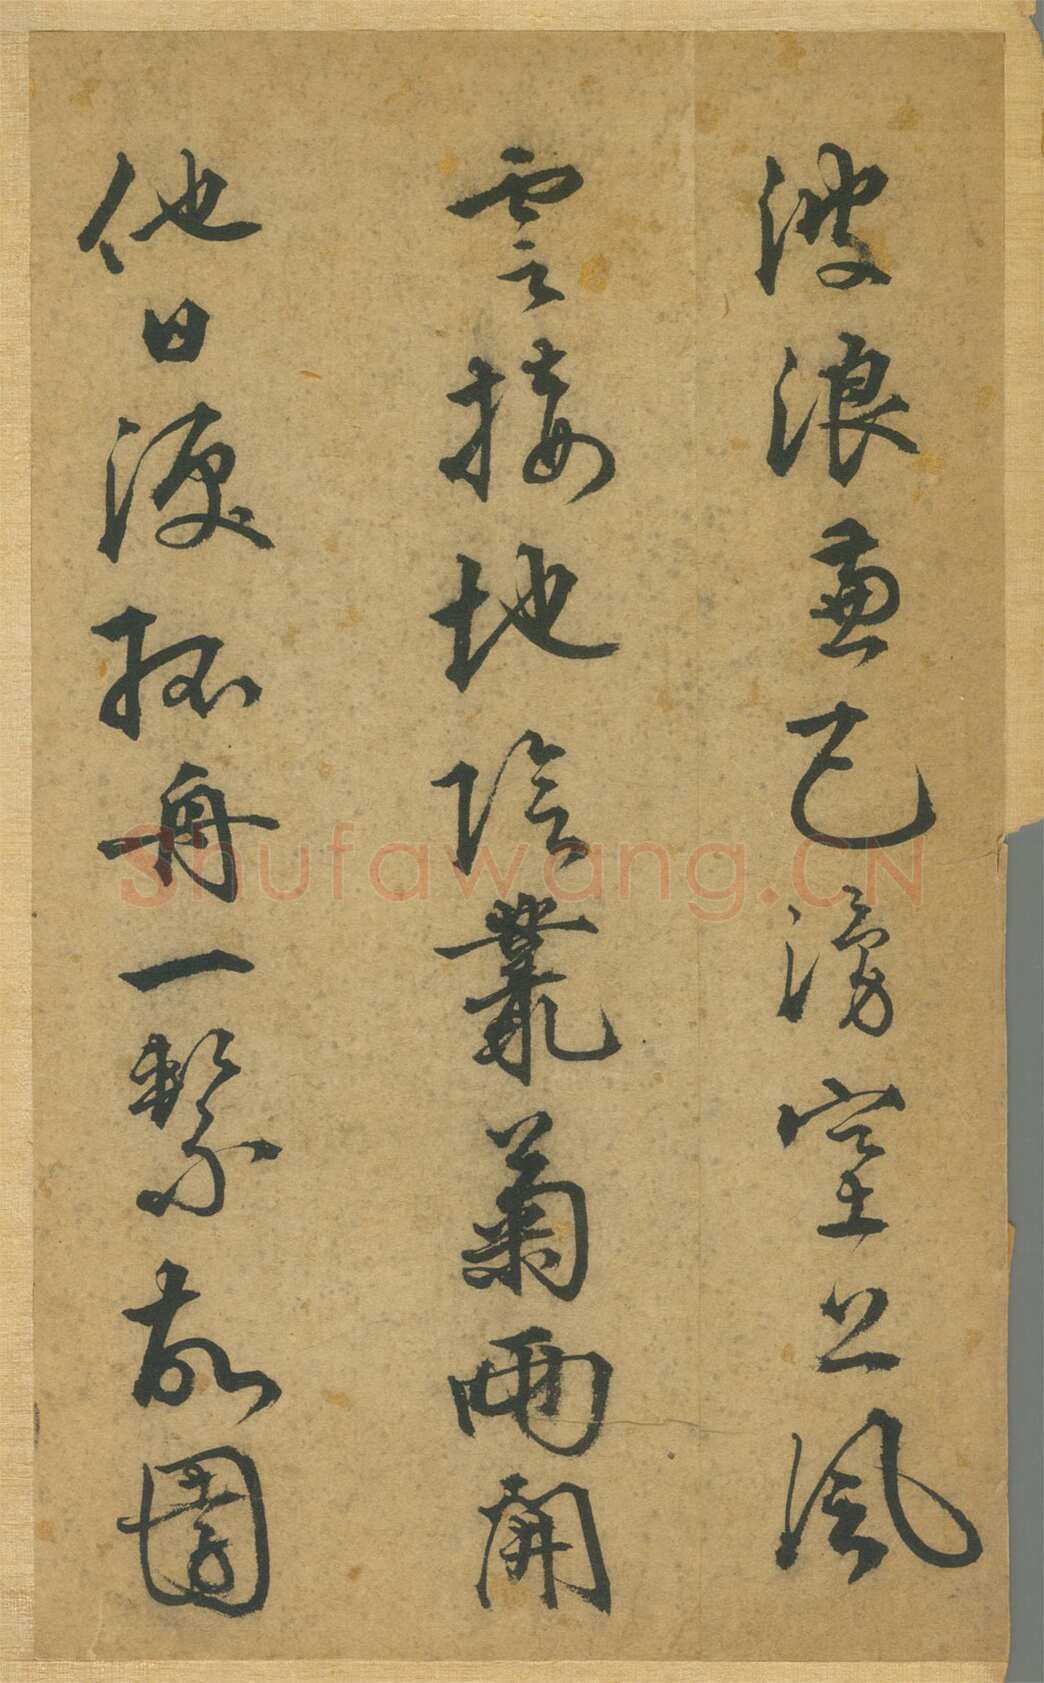 波浪兼天湧塞上風
雲接地陰叢菊兩開
他日淚孤舟一繫故園
Shufawang.CN